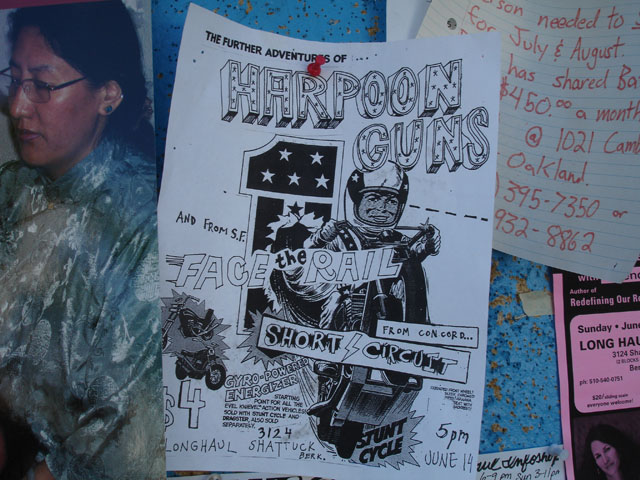 THE FURTHER ADVENTURES OF ...
HARPOON
GUNS
1
AND FROM S.F.
FACE the RAIL
FROM CONCORD...
SHORT CIRCUIT
GYRO-POWERED
ENERGIZER
STARTING
POINT FOR ALL THE
EVEL KNIEVEL ACTION VEHICLES
SOLD WITH STUNT CYCLE AND
DRAGSTER, ALSO SOLD
SEPARATELY.
$4
STUNT
CYCLE
5pm
JUNE 14
3124
LONGHAUL SHATTUCK
BERK.
needed to
for July & August
has shared
$450.00 a month
@ 1021
Oakland.
395-7350 or
932-8862
with
Author of
Redefining Our
Sunday • June
LONG HAUL
3124
ph: 510-540-0751
$20/
everyone welcome!
infoshop
Sun 3-11pm